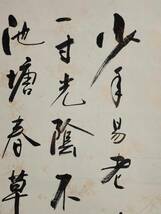 少年易老
一寸光陰不
池塘春草